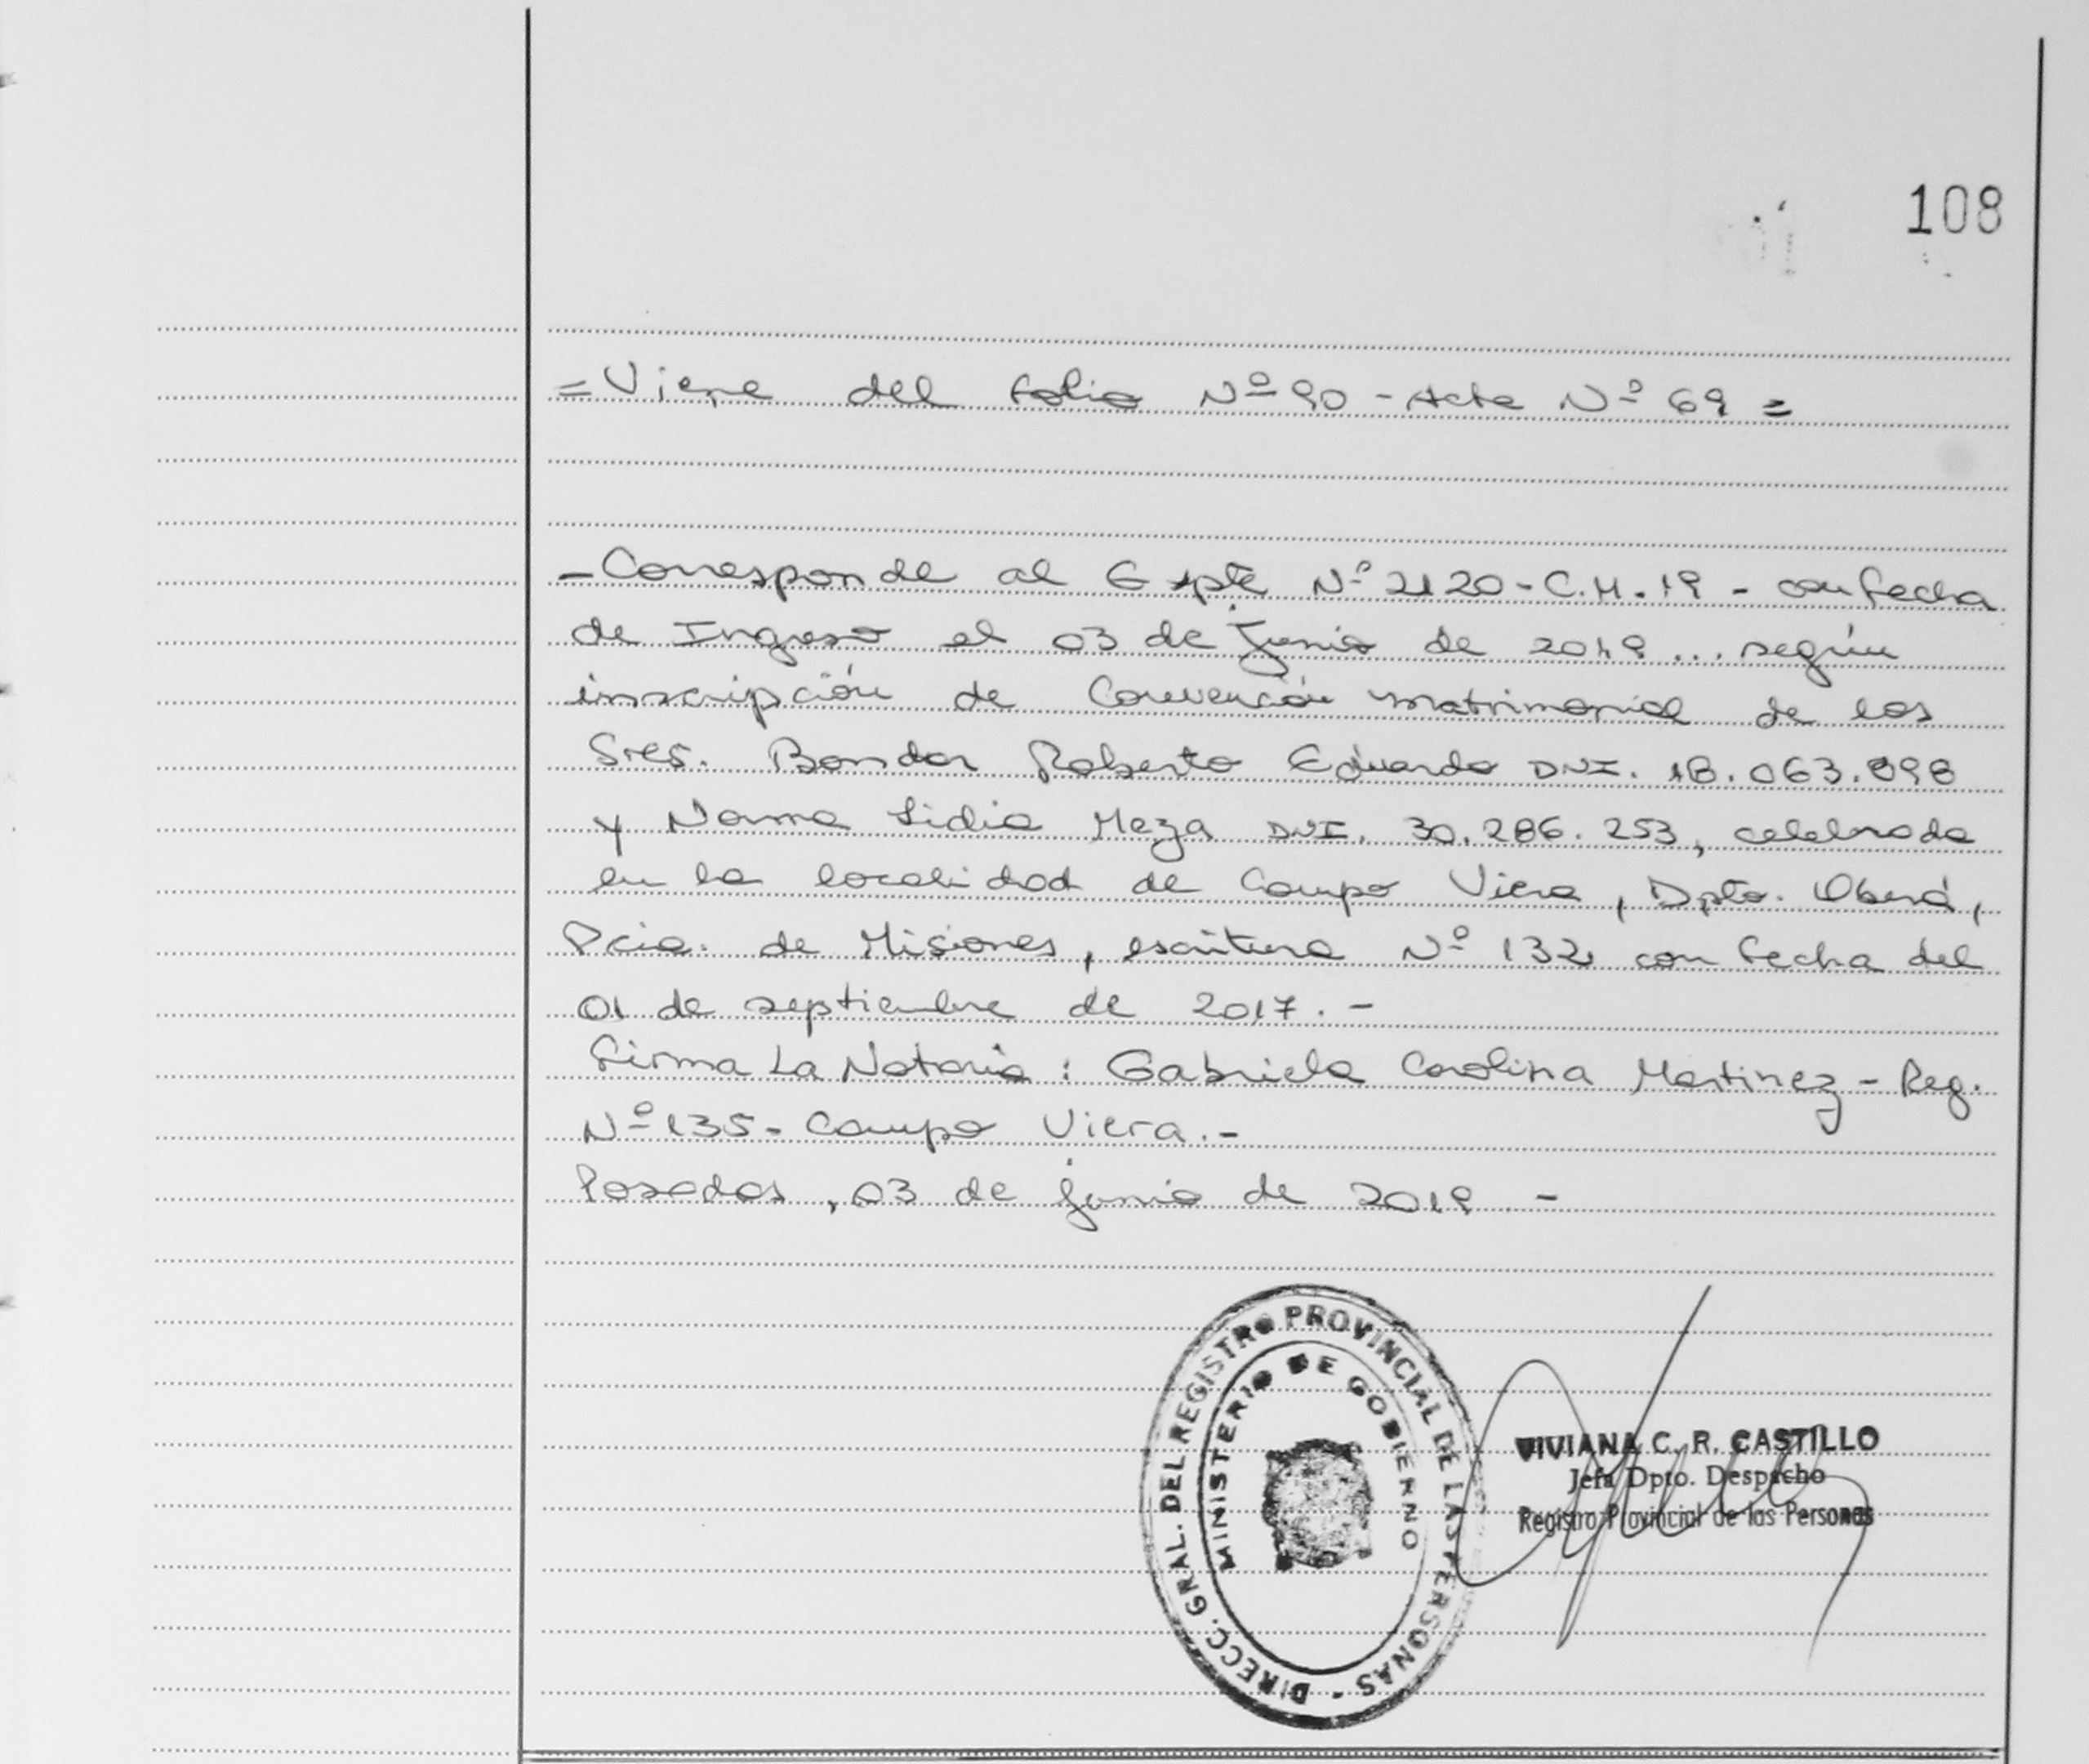 108
= Viene del folio Nº 90 - Acta Nº 69 =
- Corresponde al Expte Nº 2120 - C.M. 19 - con fecha
de Ingreso el 03 de Junio de 2019 ... según
inscripción de Convención matrimonial de los
Sres. Bondar Roberto Eduardo DNI. 18.063.898
y Norma Lidia Meza DNI. 30.286.253, celebrada
en la localidad de Campo Viera, Dpto. Oberá,
Pcia. de Misiones, escritura Nº 132 con fecha del
01 de septiembre de 2017. -
Firma La Notaria : Gabriela Carolina Martinez - Reg.
Nº 135 - Campo Viera. -
Posadas, 03 de junio de 2019 -
DIRECC. GRAL. DEL REGISTRO PROVINCIAL DE LAS PERSONAS -
MINISTERIO DE GOBIERNO
VIVIANA C. R. CASTILLO
Jefa Dpto. Despacho
Registro Provincial de las Personas